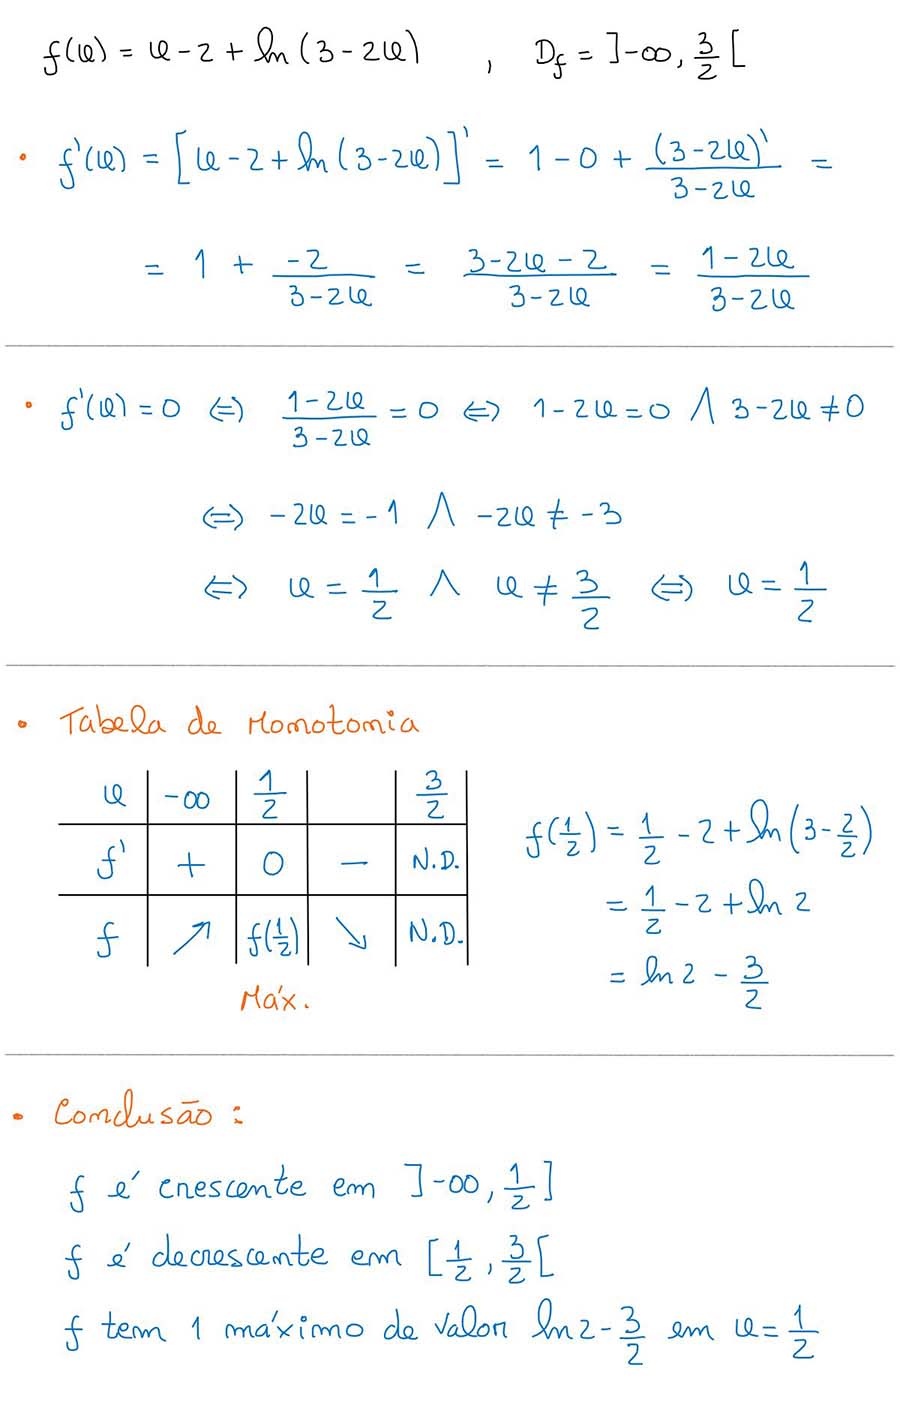 f(x) = x - 2 + ln(3 - 2x) , Df = ]-∞, 3/2[
• f'(x) = [x - 2 + ln(3 - 2x)]' = 1 - 0 + (3 - 2x)'/(3 - 2x) =
= 1 + -2/(3 - 2x) = (3 - 2x - 2)/(3 - 2x) = (1 - 2x)/(3 - 2x)
• f'(x) = 0 ⇔ (1 - 2x)/(3 - 2x) = 0 ⇔ 1 - 2x = 0 ∧ 3 - 2x ≠ 0
⇔ -2x = -1 ∧ -2x ≠ -3
⇔ x = 1/2 ∧ x ≠ 3/2 ⇔ x = 1/2
• Tabela de Monotonia
x | -∞ | 1/2 | | 3/2
f' | + | 0 | - | N.D.
f | ↗ | f(1/2) | ↘ | N.D.
Máx.
f(1/2) = 1/2 - 2 + ln(3 - 2/2)
= 1/2 - 2 + ln 2
= ln 2 - 3/2
• Conclusão :
f é crescente em ]-∞, 1/2]
f é decrescente em [1/2, 3/2[
f tem 1 máximo de valor ln 2 - 3/2 em x = 1/2